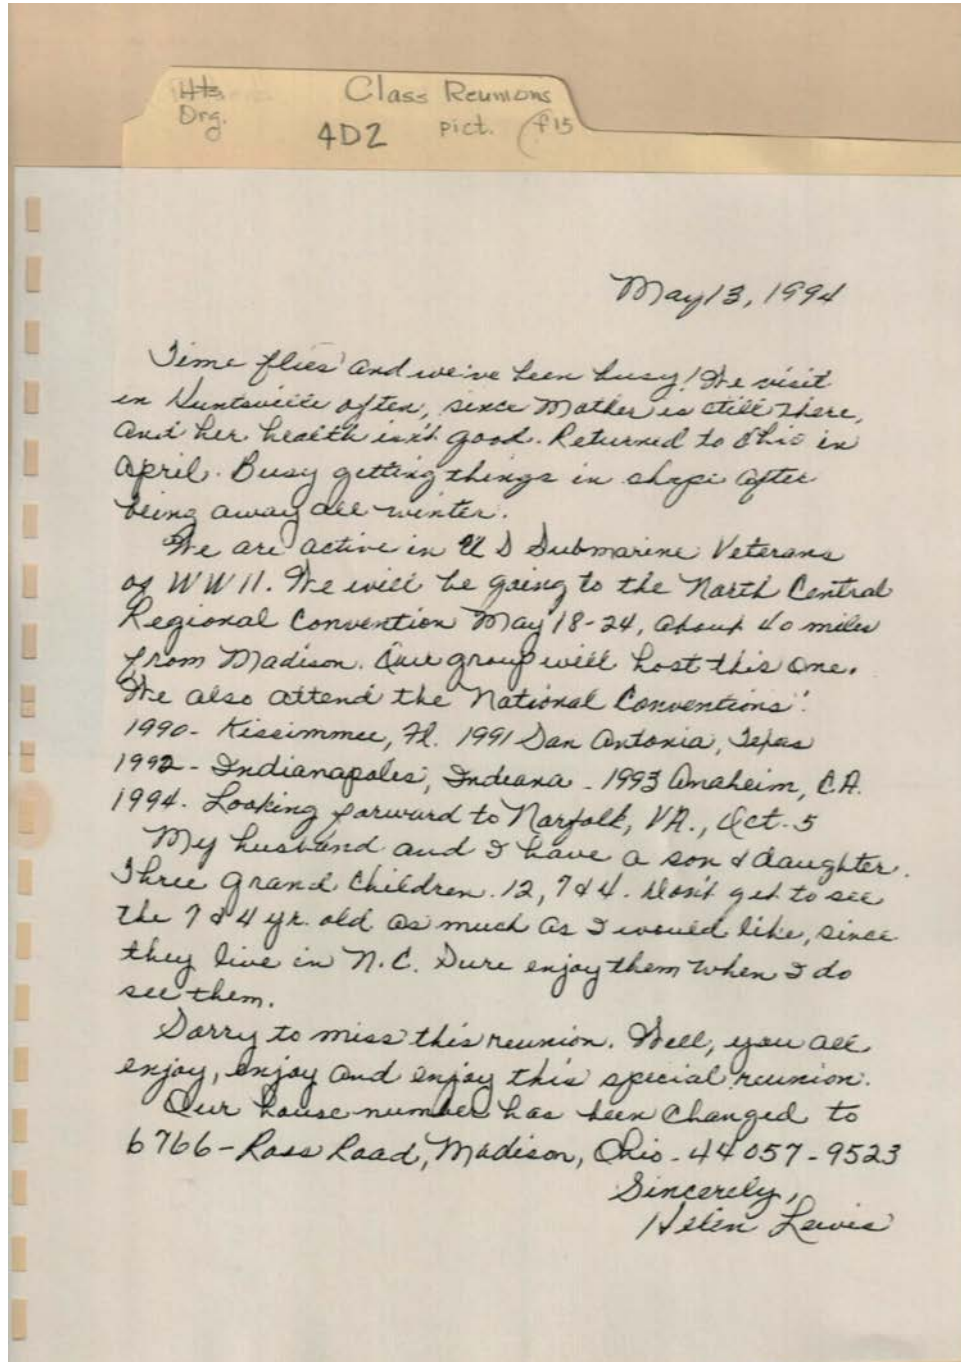 Hts. Class Reunions
Org. 4D2 pict. f15
May 13, 1994
Time flies and we've been busy! We visit
in Huntsville often, since Mother is still there,
and her health isn't good. Returned to Ohio in
April. Busy getting things in shape after
being away all winter.
We are active in U S Submarine Veterans
of WW II. We will be going to the North Central
Regional Convention May 18-24, about 40 miles
from Madison. Our group will host this one.
We also attend the National Conventions:
1990- Kissimmee, Fl. 1991 San Antonia, Texas
1992- Indianapoles, Indiana - 1993 Anaheim, C.A.
1994. Looking forward to Norfolk, VA., Oct. 5
My husband and I have a son & daughter.
Three grand children. 12, 7 & 4. Don't get to see
the 7 & 4 yr. old as much as I would like, since
they live in N.C. Sure enjoy them when I do
see them.
Sorry to miss this reunion. Well, you all
enjoy, enjoy and enjoy this special reunion.
Our house number has been changed to
6766- Ross Road, Madison, Ohio - 44057-9523
Sincerely,
Helen Lewis